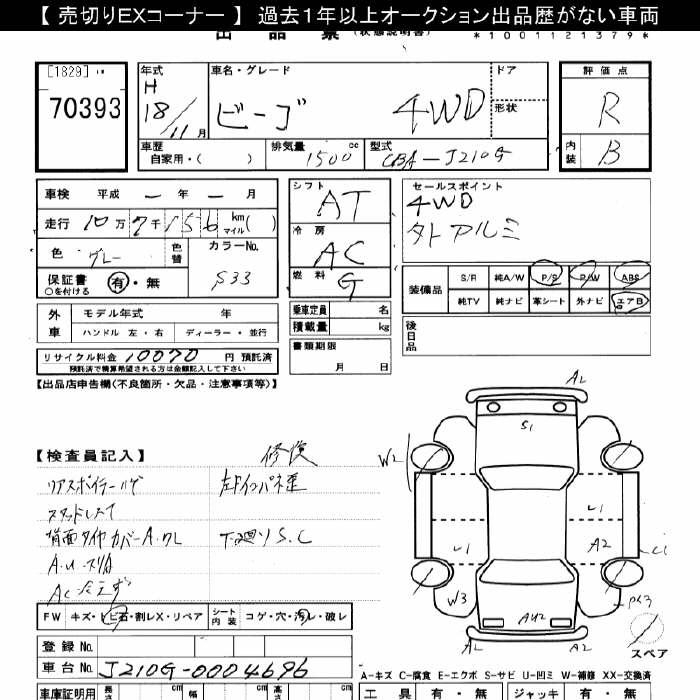 【 売切りEXコーナー 】 過去１年以上オークション出品歴がない車両
出品票 (状態説明書) *10011213 79*
[1829]
70393
年式 H 18/11月
車名・グレード ビーゴ 4WD
ドア
形状
評価点 R
内装 B
車歴 自家用・( )
排気量 1500 cc
型式 CBA-J210G
車検 平成 ー 年 ー 月
走行 10万7千156 km マイル( )
色 グレー 色替
カラーNo. S33
保証書 ○を付ける 有・無
シフト AT
冷房 AC
燃料 G
セールスポイント
4WD
外アルミ
装備品 S/R 純A/W P/S P/W ABS
純TV 純ナビ 革シート 外ナビ エアB
外車 モデル年式 年
ハンドル 左・右 ディーラー・並行
乗車定員 名
積載量 kg
後日品
リサイクル料金 10070 円 預託済
預託済で精算希望される方は金額記入して下さい
書類期限 月 日
【出品店申告欄(不良箇所・欠品・注意事項等)】
【検査員記入】 修復
リアスポイラーハゲ
左Fインパネ歪
背面タイヤカバーA.ワレ
下廻りS.C
A.U.スリA
AC冷えず
FW キズ・トビ石・割レX・リペア
シート内装 コゲ・穴・汚レ・破レ
登録No.
車台No. J210G-0004696
車庫証明用 長さ cm 幅 cm 高さ cm
A2
S1
W2
U1
U1
A2
W3
AU2
A2
A2
スペア
A-キズ C-腐食 E-エクボ S-サビ U-凹ミ W-補修 XX-交換済
工具 有・無 ジャッキ 有・無